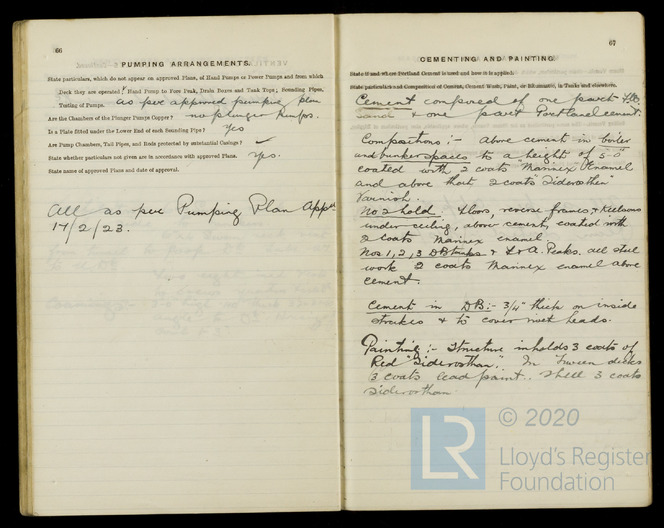 66
PUMPING ARRANGEMENTS.
State particulars, which do not appear on approved Plans, of Hand Pumps or Power Pumps and from which
Deck they are operated; Hand Pump to Fore Peak, Drain Boxes and Tank Tops; Sounding Pipes,
Testing of Pumps. as per approved pumping plan
Are the Chambers of the Plunger Pumps Copper? no plunger Pumps.
Is a Plate fitted under the Lower End of each Sounding Pipe? Yes
Are Pump Chambers, Tail Pipes, and Rods protected by substantial Casings? ✓
State whether particulars not given are in accordance with approved Plans. Yes.
State name of approved Plans and date of approval.
All as per Pumping Plan Appd
17/2/23.
67
CEMENTING AND PAINTING
State if and where Portland Cement is used and how it is applied.
State particulars and Composition of Cements, Cement Wash, Paint, or Bitumastic, in Tanks and elsewhere.
Cement composed of one part
sand & one part Portland cement.
Compositions :- above cement in boiler
and bunker spaces to a height of 5'-0"
coated with 2 coats "Marinex" Enamel
and above that 2 coats "Siderosthen"
Varnish.
No 2 hold. Floors, reverse frames & Keelsons
under ceiling, above cement, coated with
2 coats Marinex enamel.
Nos 1, 2, 3 DBtanks & F & A. Peaks. all steel
work 2 coats Marinex enamel above
cement.
Cement in DB:- 3/4" thick on inside
strakes & to cover rivet heads.
Painting :- Structure in holds 3 coats of
Red "Siderosthan". In Tween decks
3 coats lead paint. Shell 3 coats
Siderosthan
© 2020
LR
Lloyd's Register
Foundation